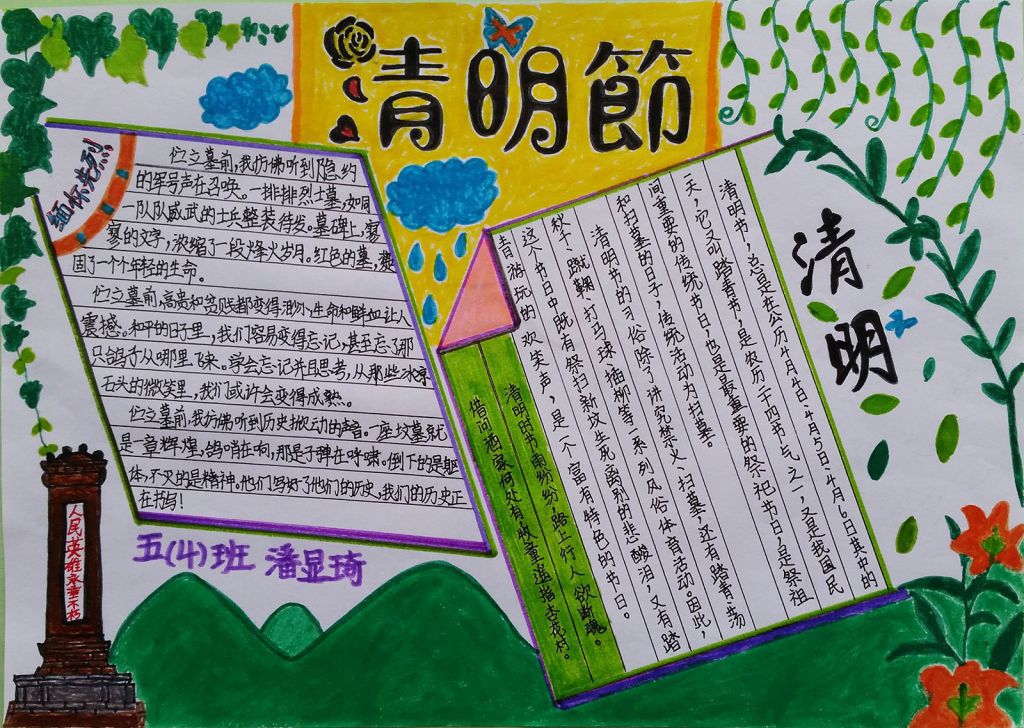 清明節
缅怀先烈
伫立墓前,我仿佛听到隐约
的军号声在召唤。一排排烈士墓,如同
一队队威武的士兵整装待发。墓碑上,寥
寥的文字,浓缩了一段烽火岁月。红色的墓,凝
固了一个个年轻的生命。
伫立墓前,高贵和贫贱都变得渺小,生命和鲜血让人
震撼。和平的日子里,我们容易变得忘记,甚至忘了那
只鸽子从哪里飞来。学会忘记并且思考,从那些冰冷
石头的微笑里,我们或许会变得成熟。
伫立墓前,我仿佛听到历史掀动的声音。一座坟墓就
是一章辉煌,鸽哨在响,那是子弹在呼啸。倒下的是躯
体,不灭的是精神。他们写好了他们的历史,我们的历史正
在书写!
五(4)班 潘显琦
人民英雄永垂不朽
清明
清明书,总是在公历4月4日.4月5日.4月6日其中的
一天,它又叫踏青书,是农历二十四节气之一,又是我国民
间重要的传统书日,也是最重要的祭祀书日,是祭祖
和扫墓的日子,传统活动为扫墓。
清明书的习俗除了讲究禁火、扫墓,还有踏青.荡
秋千、蹴鞠、打马球.插柳等一系列风俗体育活动。因此,
这个书日中既有祭扫新坟生死离别的悲酸泪,又有踏
青游玩的欢笑声,是一个富有特色的书日。
清明时书雨纷纷,路上行人欲断魂。
借问酒家何处有,牧童遥指杏花村。